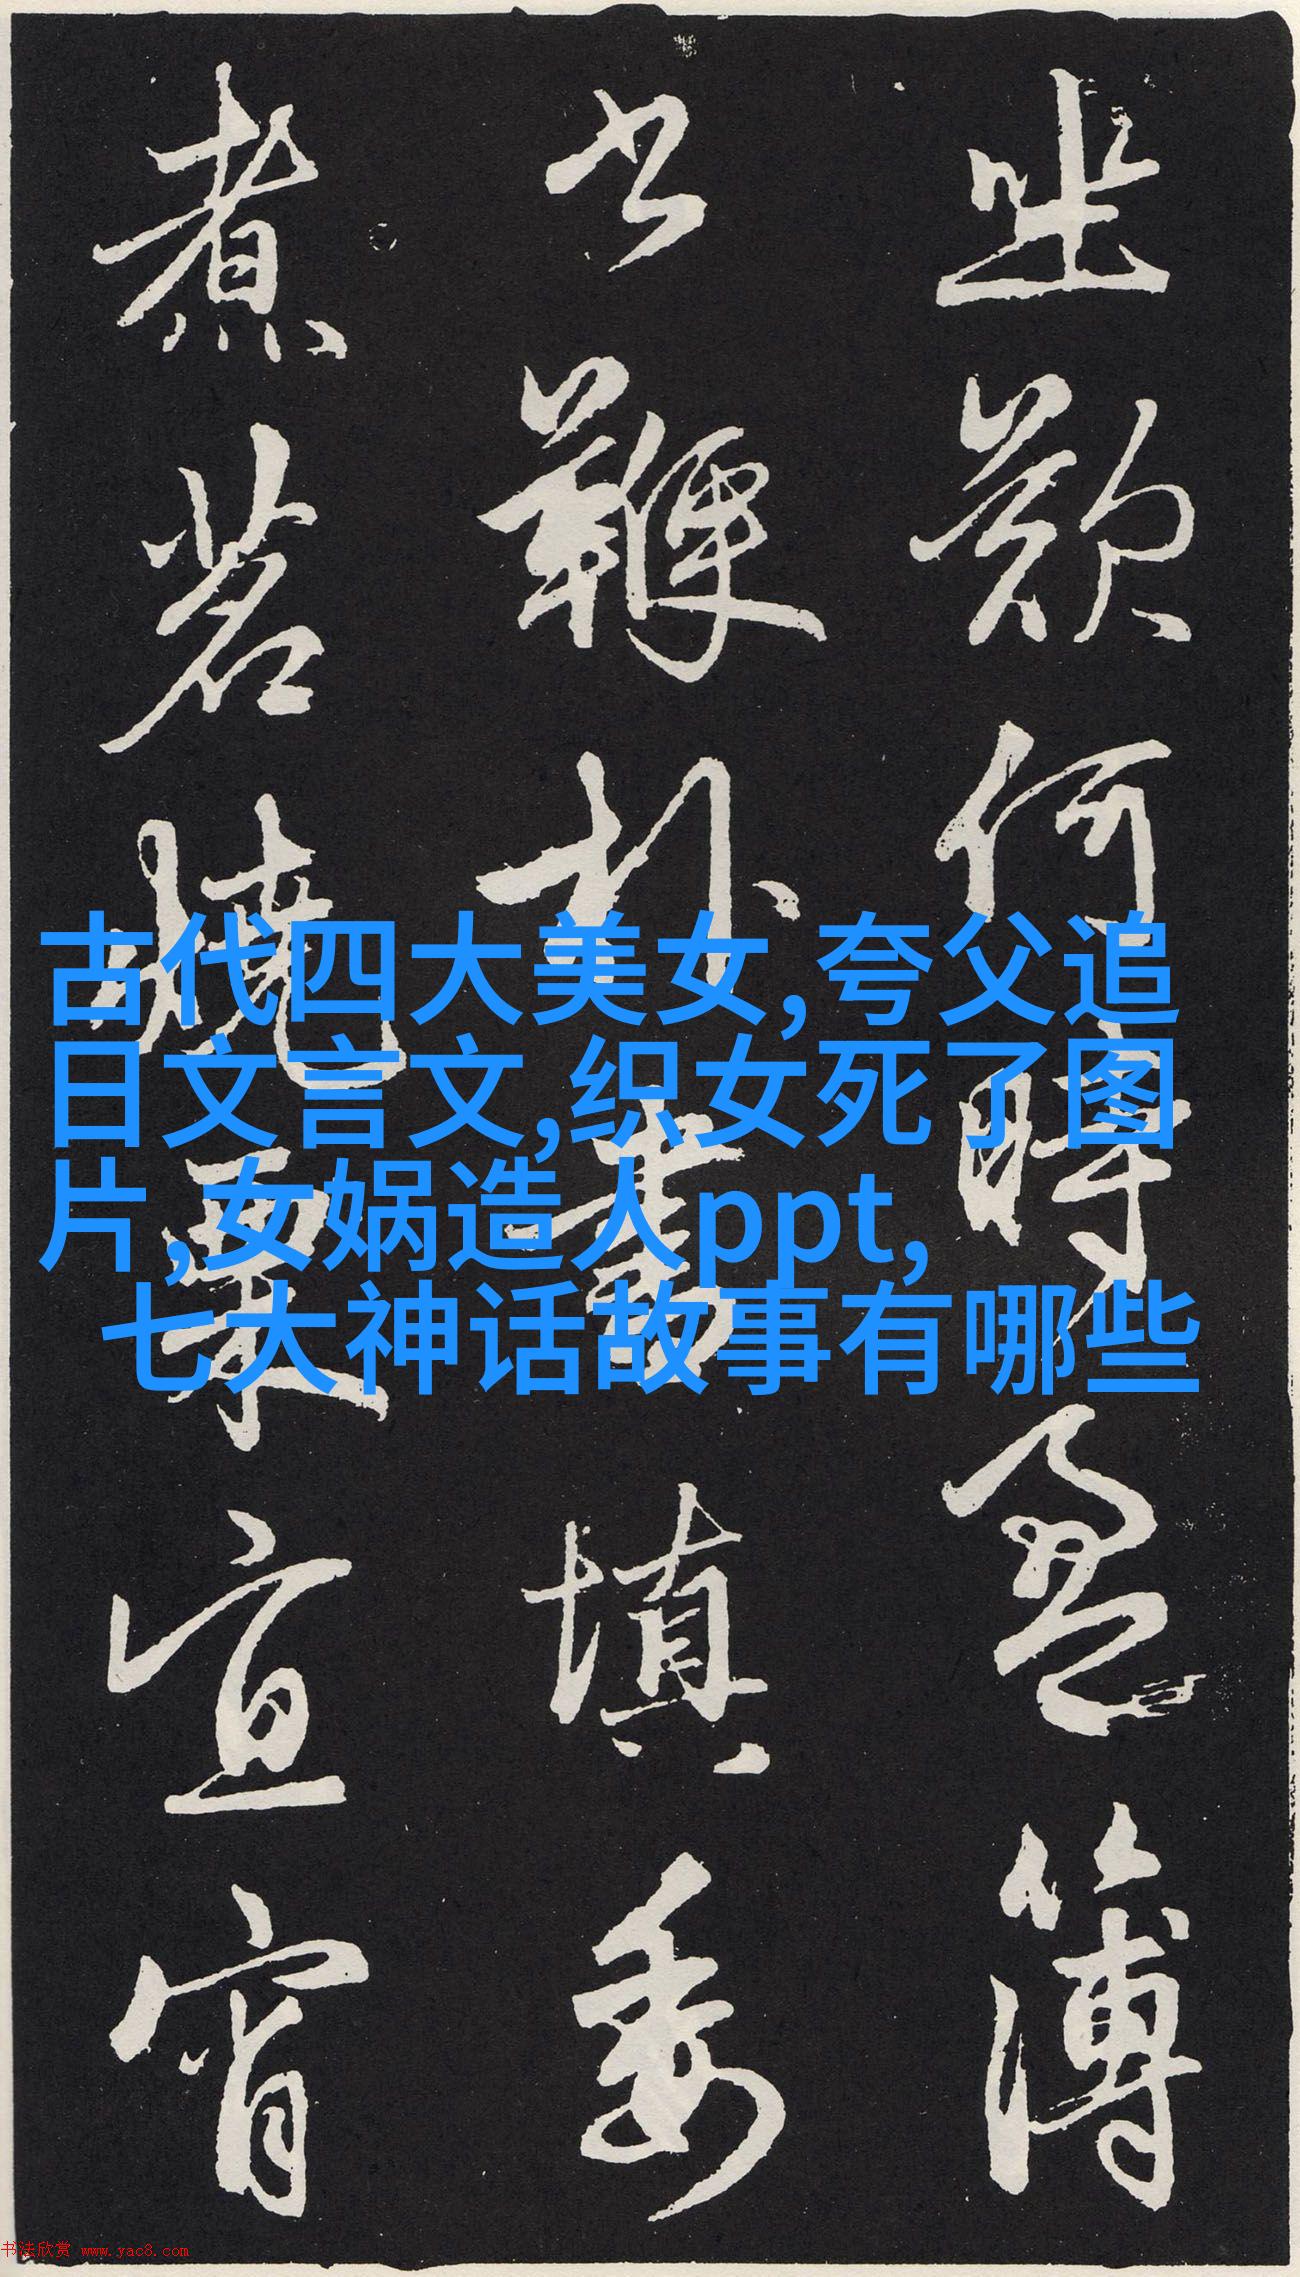 古代四大美女,夸父追
日文言文,织女死了图
片,女娲造人ppt,
七大神话故事有哪些
止欲何時盈簿
公鞭扑書填委
煮茗燒栗宜宵
书法欣赏 www.yac8.com